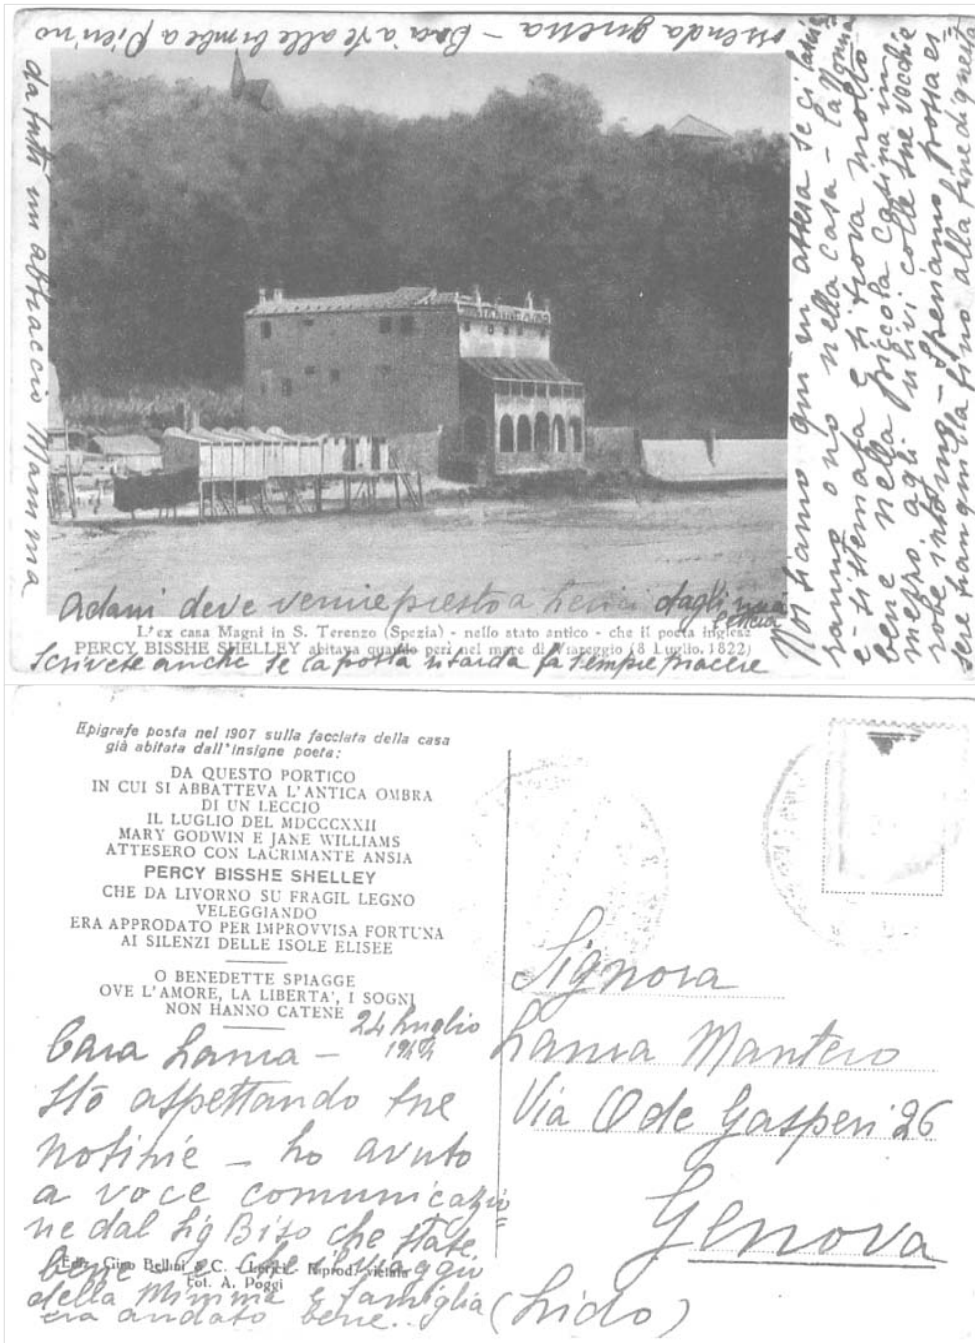 orrenda guerra - Baci a te alle bimbe a Pierino
da tutti un abbraccio Mamma
Noi siamo qui in attesa se ci lasie
ranno o no nella casa - la Nonna
è sistemata e si trova molto
bene nella piccola casina in
mezzo agli ulivi colle sue vecchie
robe intorno - Speriamo possa es
sere tranquilla fino alla fine di questa
Adani deve venire presto a Lerici dagli
L'ex casa Magni in S. Terenzo (Spezia) - nello stato antico - che il poeta inglese
PERCY BISSHE SHELLEY abitava quando perì nel mare di Viareggio (8 Luglio, 1822)
Scrivete anche se la posta ritarda fa sempre piacere
Epigrafe posta nel 1907 sulla facciata della casa
già abitata dall'insigne poeta:
DA QUESTO PORTICO
IN CUI SI ABBATTEVA L'ANTICA OMBRA
DI UN LECCIO
IL LUGLIO DEL MDCCCXXII
MARY GODWIN E JANE WILLIAMS
ATTESERO CON LACRIMANTE ANSIA
PERCY BISSHE SHELLEY
CHE DA LIVORNO SU FRAGIL LEGNO
VELEGGIANDO
ERA APPRODATO PER IMPROVVISA FORTUNA
AI SILENZI DELLE ISOLE ELISEE
O BENEDETTE SPIAGGE
OVE L'AMORE, LA LIBERTA', I SOGNI
NON HANNO CATENE
24 Luglio
1944
Cara Laura -
Sto aspettando tue
notizie - ho avuto
a voce comunicazio
ne dal Sig Biso che state
bene - che il viaggio
della Mimma e famiglia
era andato bene..
Ediz. Gino Bellini & C. - Lerici - Riprod. vietata
Fot. A. Poggi
Signora
Laura Mantero
Via O de Gasperi 26
Genova
(Lido)